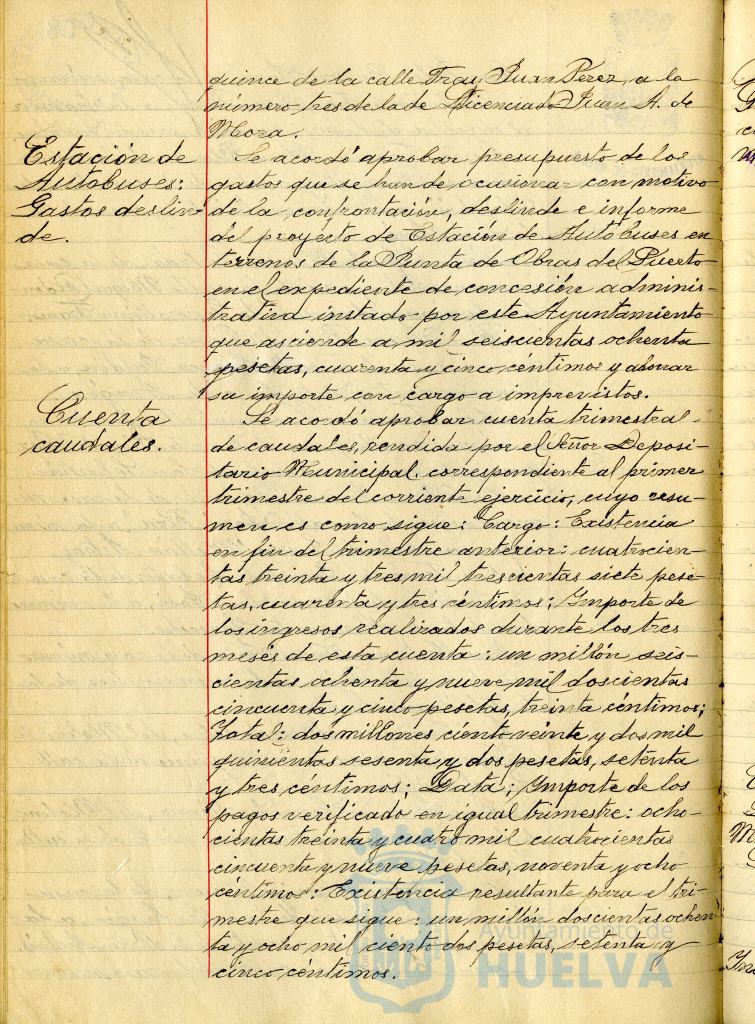 quince de la calle Fray Juan Pérez, a la
número tres de la de Licenciado Juan A. de
Mora.
Estación de
Autobuses:
Gastos deslin-
de.
Se acordó aprobar presupuesto de los
gastos que se han de ocasionar con motivo
de la confrontación, deslinde e informe
del proyecto de Estación de Autobuses en
terrenos de la Punta de Obras del Puerto
en el expediente de concesión adminis-
trativa instado por este Ayuntamiento
que asciende a mil seiscientas ochenta
pesetas, cuarenta y cinco céntimos y abonar
su importe con cargo a imprevistos.
Cuenta
caudales.
Se acordó aprobar cuenta trimestral
de caudales, rendida por el Señor Deposi-
tario Municipal, correspondiente al primer
trimestre del corriente ejercicio, cuyo resu-
men es como sigue: Cargo: Existencia
en fin del trimestre anterior: cuatrocien-
tas treinta y tres mil trescientas siete pese-
tas, cuarenta y tres céntimos; Importe de
los ingresos realizados durante los tres
meses de esta cuenta: un millón seis-
cientas ochenta y nueve mil doscientas
cincuenta y cinco pesetas, treinta céntimos;
Total: dos millones ciento veinte y dos mil
quinientas sesenta y dos pesetas, setenta
y tres céntimos; Data; Importe de los
pagos verificado en igual trimestre: ocho-
cientas treinta y cuatro mil cuatrocientas
cincuenta y nueve pesetas, noventa y ocho
céntimos: Existencia resultante para el tri-
mestre que sigue: un millón doscientas ochen-
ta y ocho mil ciento dos pesetas, setenta y
cinco céntimos.
Ayuntamiento de
HUELVA